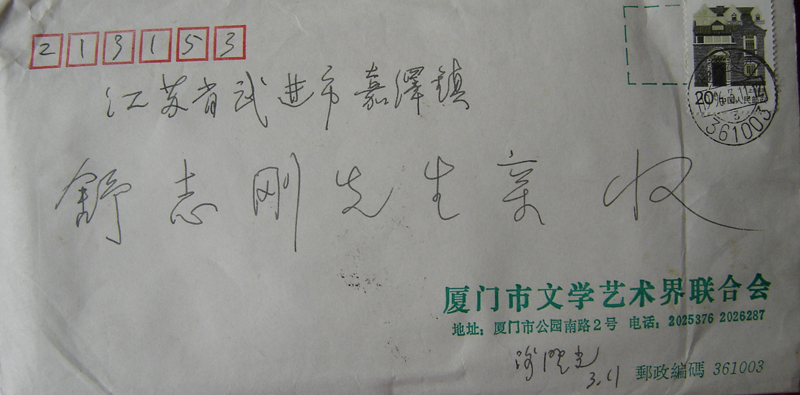 213153
江苏省武进市嘉泽镇
舒志刚先生亲收
20 中国人民邮政
361003
厦门市文学艺术界联合会
地址：厦门市公园南路2号 电话：2025376 2026287
3.11
郵政编碼 361003